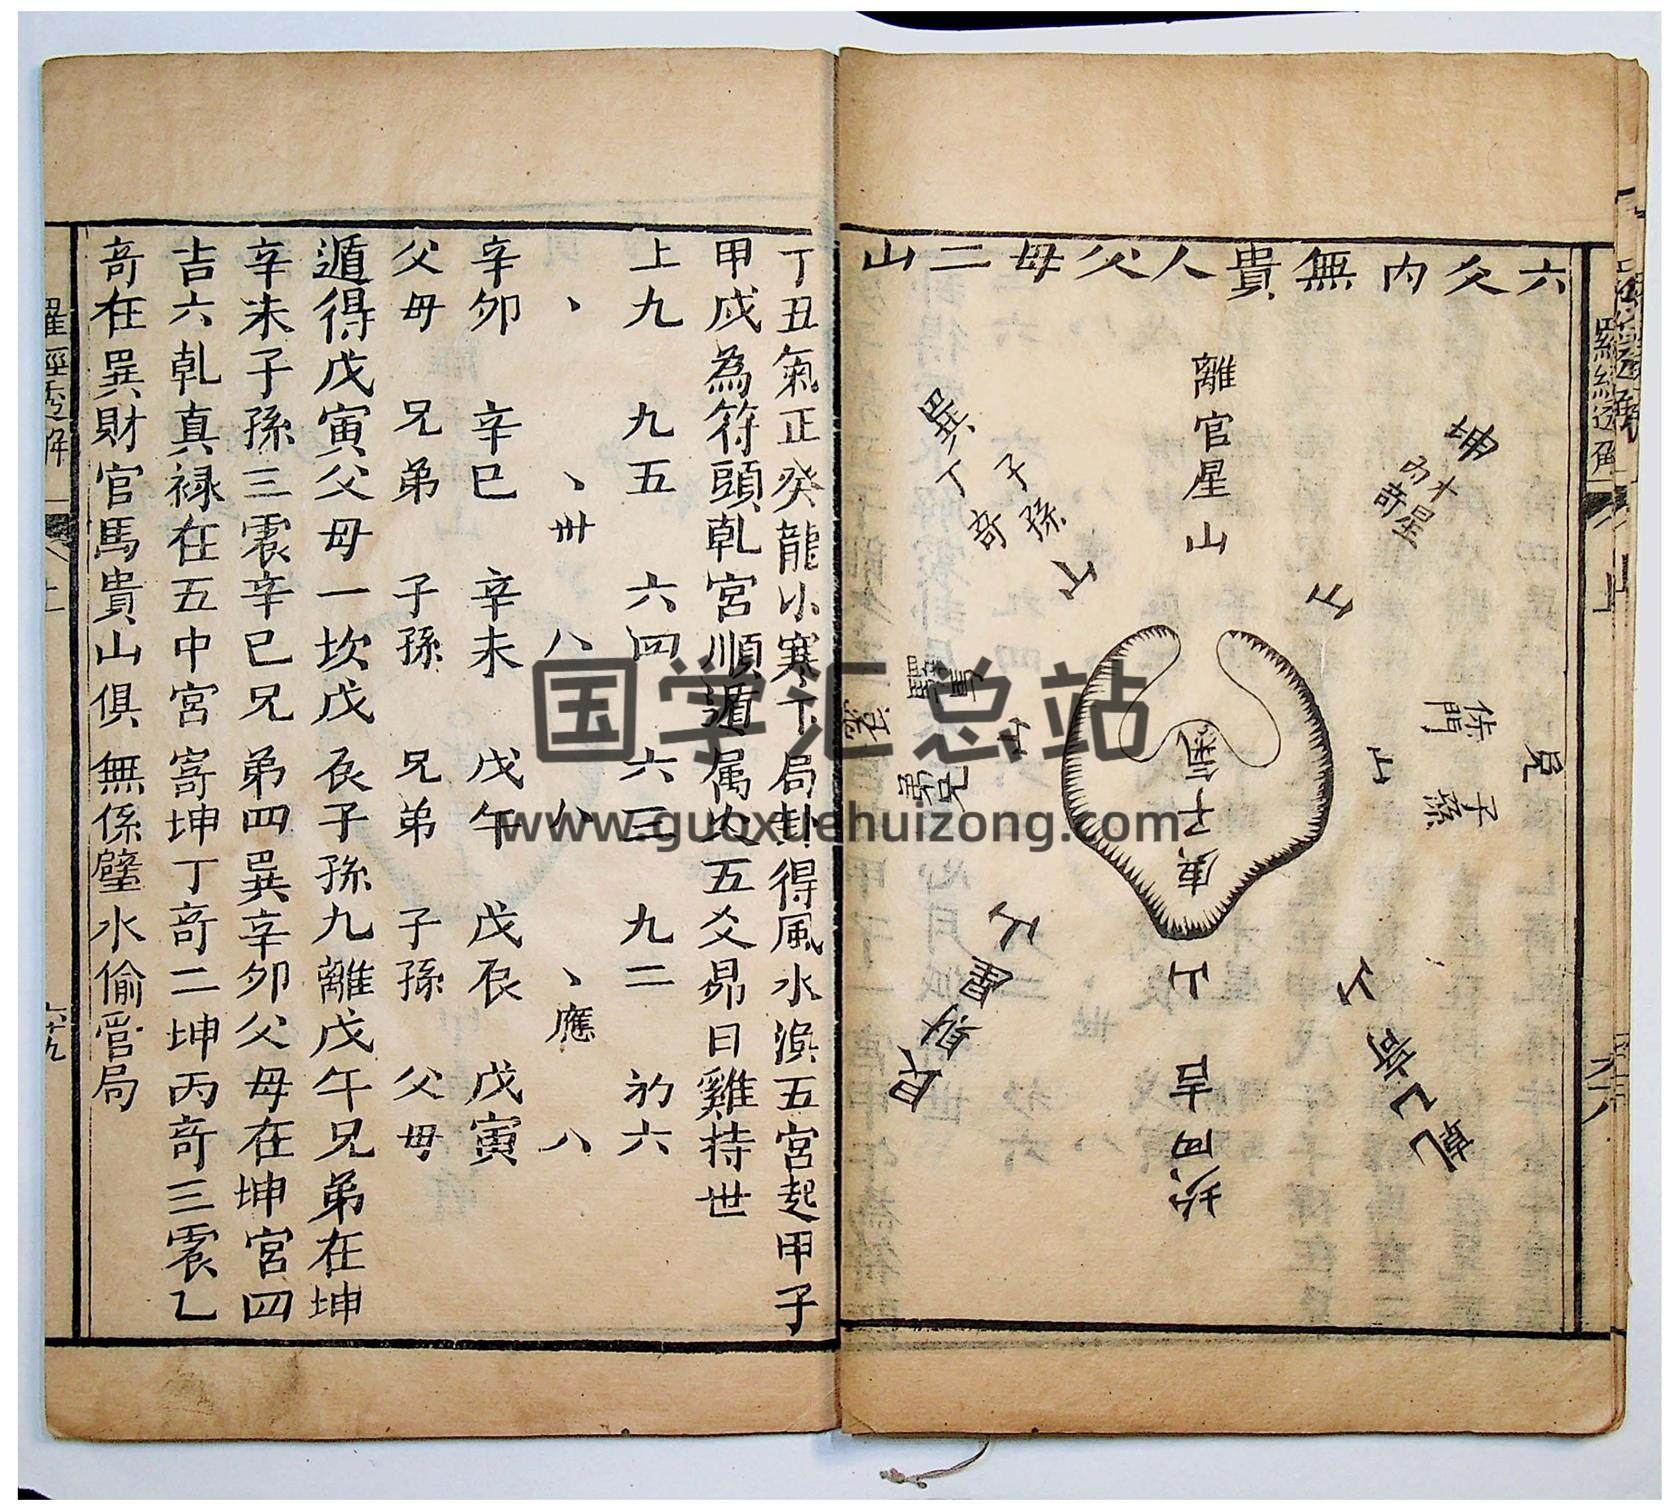 六爻内無貴人父母二山
離官星山
坤
十星
丙奇
山
巽
子孫
丁奇
山
兄弟
山
休門
子孫
兌
山
艮
山
山
吉
坎
山
乙奇
乾
庚子氣
丁丑氣正癸龍小寒下局卦得風水渙五宮起甲子
甲戌為符頭乾宮順遁属火五爻昴日雞持世
上九 九五 六四 六三 九二 初六
、 、卅 八 八 、應 八
辛卯 辛巳 辛未 戊午 戊辰 戊寅
父母 兄弟 子孫 兄弟 子孫 父母
遁得戊寅父母一坎戊辰子孫九離戊午兄弟在坤
辛未子孫三震辛巳兄弟四巽辛卯父母在坤宮四
吉六乾真禄在五中宮寄坤丁奇二坤丙奇三震乙
奇在巽財官馬貴山俱無係壁水偷官局
羅經透解
上
六十九
国学汇总站
www.guoxuehuizong.com